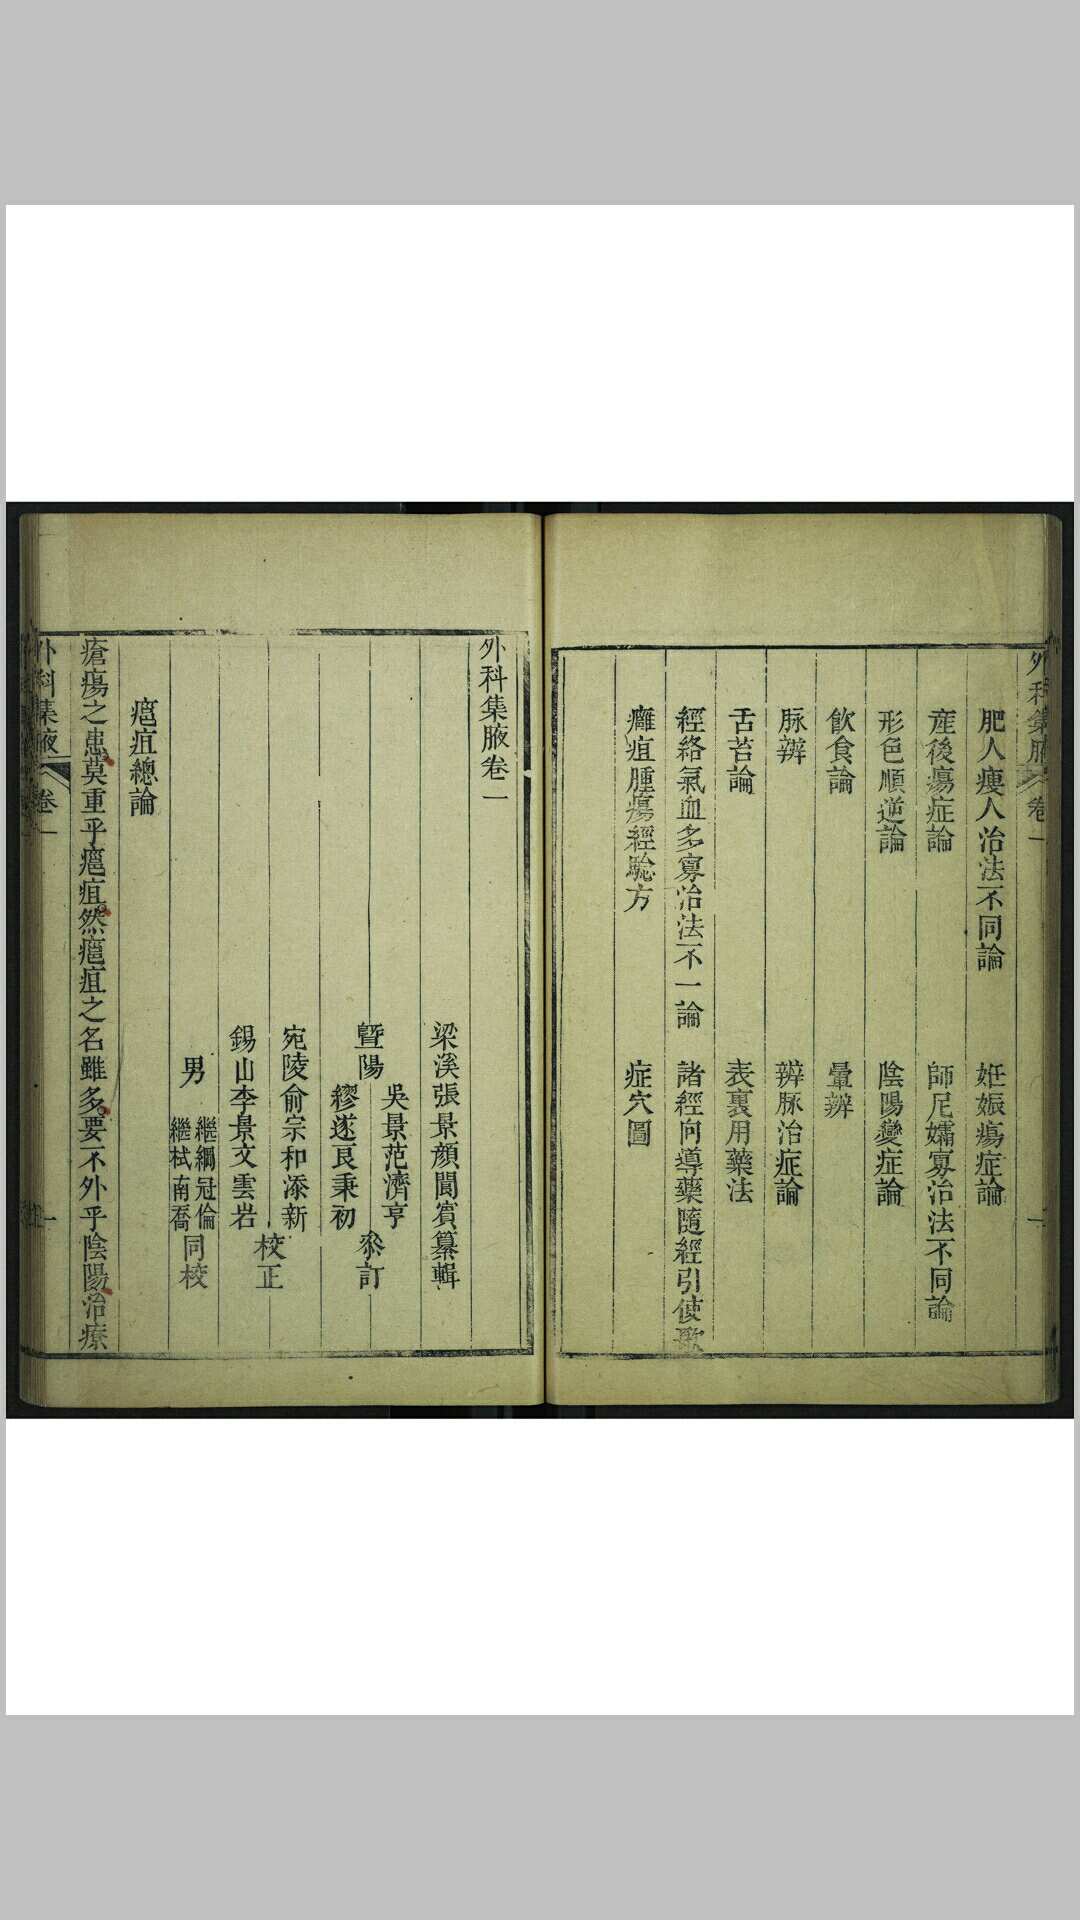 外科集腋 卷一 一
肥人瘦人治法不同論 妊娠瘍症論
産後瘍症論 師尼孀寡治法不同論
形色順逆論 陰陽變症論
飲食論 暈辨
脉辨 辨脉治症論
舌苔論 表裏用藥法
經絡氣血多寡治法不一論 諸經向導藥隨經引使歌
癰疽腫瘍經驗方 症穴圖
外科集腋卷一
梁溪張景顔閬賓纂輯
暨陽 吳景范濟亨 繆遂良秉初 叅訂
宛陵俞宗和添新
錫山李景文雲岩 校正
男 繼綱冠倫 繼栻南喬 同校
癰疽總論
瘡瘍之患莫重乎癰疽。然癰疽之名雖多。要不外乎陰陽治療
外科集液 卷一 一